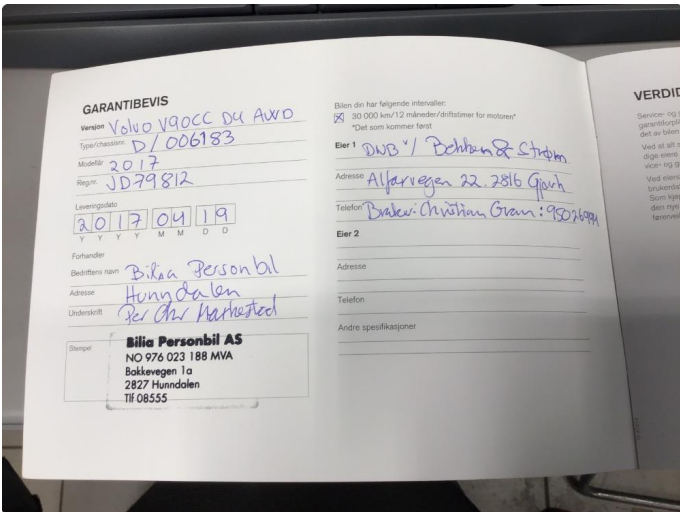 GARANTIBEVIS
Versjon Volvo V90CC D4 AWD
Type/chassisnr. D/006183
Modellår 2017
Reg.nr. JD79812
Leveringsdato
2017 04 19
Y Y Y Y M M D D
Forhandler
Bedriftens navn Bilia Personbil
Adresse Hunndalen
Underskrift Per Chr
Stempel
Bilia Personbil AS
NO 976 023 188 MVA
Bakkevegen 1a
2827 Hunndalen
Tlf 08555
Bilen din har følgende intervaller:
30 000 km/12 måneder/driftstimer for motoren*
*Det som kommer først
Eier 1 DNB v/ & Strøm
Adresse Alfarvegen 22. 2816 Gjøvik
Telefon Bruker: Christian Gran:
Eier 2
Adresse
Telefon
Andre spesifikasjoner
VERDID
Service- og
garantiforpl
det av bilen
Ved et alt s
dige eiere
vice- og g
Ved eiers
brukerdat
Som kjø
den nye
førervei